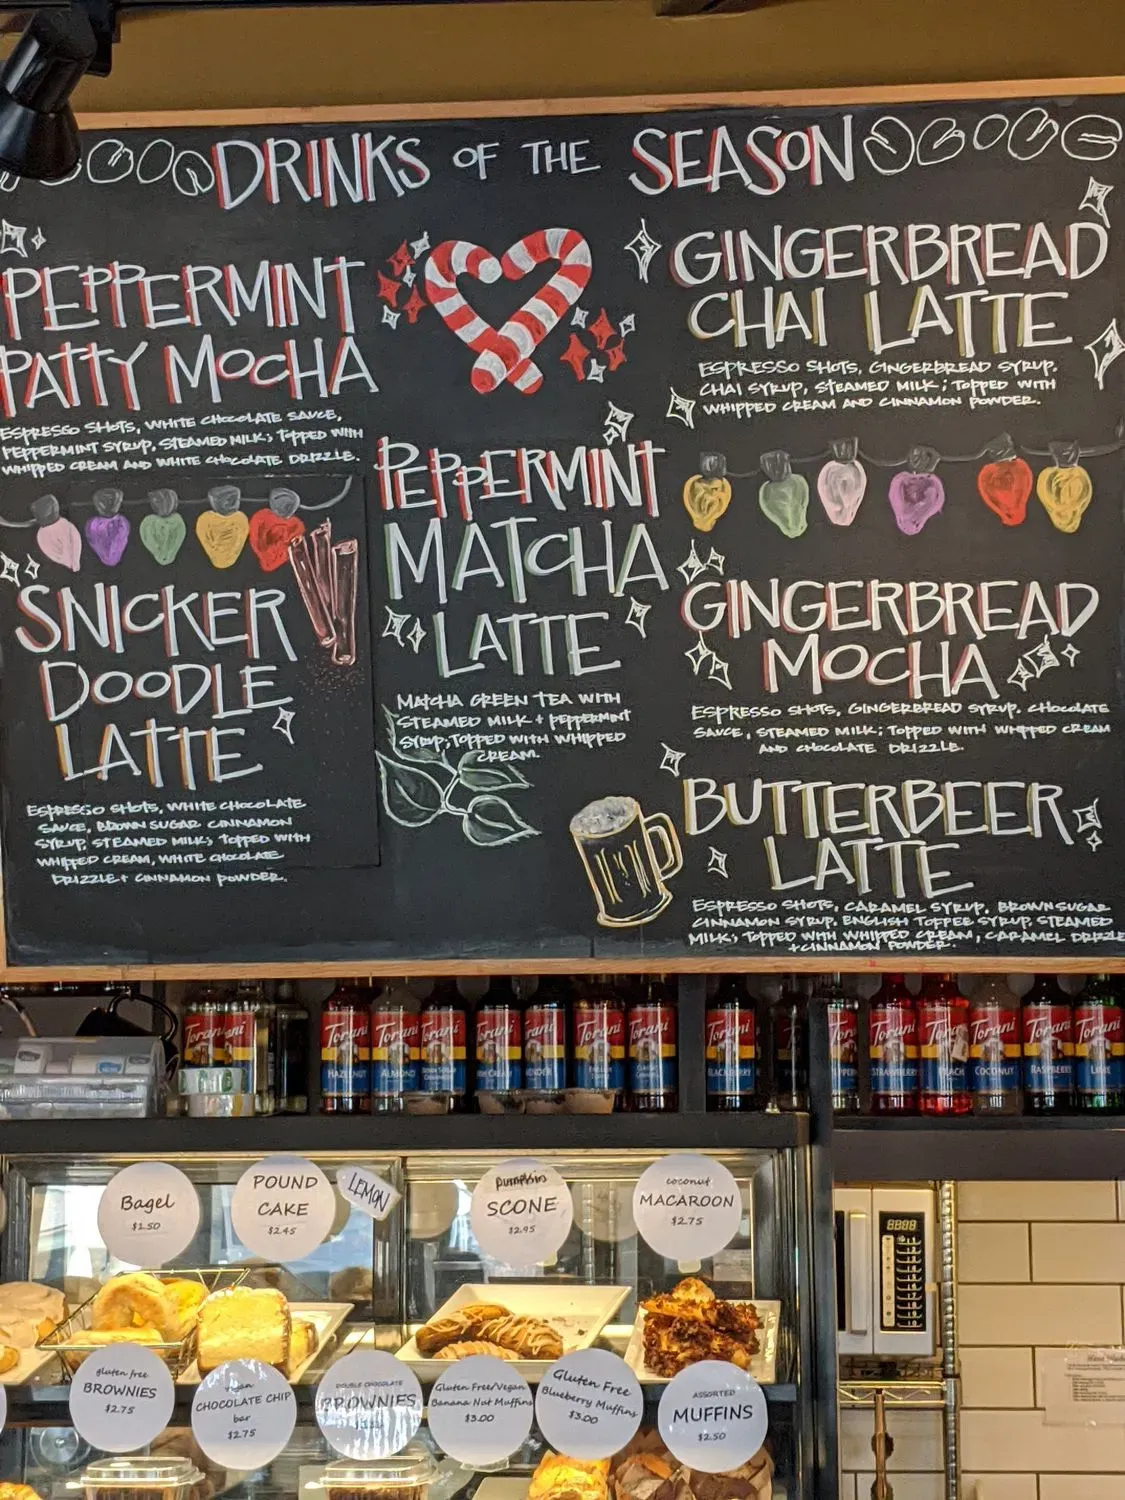 DRINKS OF THE SEASON
PEPPERMINT
PATTY MOCHA
ESPRESSO SHOTS, WHITE CHOCOLATE SAUCE,
PEPPERMINT SYRUP, STEAMED MILK; TOPPED WITH
WHIPPED CREAM AND WHITE CHOCOLATE DRIZZLE.
SNICKER
DOODLE
LATTE
ESPRESSO SHOTS, WHITE CHOCOLATE
SAUCE, BROWN SUGAR CINNAMON
SYRUP, STEAMED MILK; TOPPED WITH
WHIPPED CREAM, WHITE CHOCOLATE
DRIZZLE + CINNAMON POWDER.
PEPPERMINT
MATCHA
LATTE
MATCHA GREEN TEA WITH
STEAMED MILK + PEPPERMINT
SYRUP; TOPPED WITH WHIPPED
CREAM.
GINGERBREAD
CHAI LATTE
ESPRESSO SHOTS, GINGERBREAD SYRUP,
CHAI SYRUP, STEAMED MILK; TOPPED WITH
WHIPPED CREAM AND CINNAMON POWDER.
GINGERBREAD
MOCHA
ESPRESSO SHOTS, GINGERBREAD SYRUP, CHOCOLATE
SAUCE, STEAMED MILK; TOPPED WITH WHIPPED CREAM
AND CHOCOLATE DRIZZLE.
BUTTERBEER
LATTE
ESPRESSO SHOTS, CARAMEL SYRUP, BROWN SUGAR
CINNAMON SYRUP, ENGLISH TOFFEE SYRUP, STEAMED
MILK; TOPPED WITH WHIPPED CREAM, CARAMEL DRIZZLE
+ CINNAMON POWDER.
Torani Torani Torani Torani Torani Torani Torani Torani Torani Torani Torani Torani Torani Torani
HAZELNUT ALMOND BLACKBERRY STRAWBERRY PEACH COCONUT RASPBERRY LIME
Bagel
$1.50
POUND
CAKE
$2.45
LEMON
pumpkin
SCONE
$2.95
coconut
MACAROON
$2.75
gluten free
BROWNIES
$2.75
CHOCOLATE CHIP
bar
$2.75
DOUBLE CHOCOLATE
BROWNIES
Gluten Free/Vegan
Banana Nut Muffins
$3.00
Gluten Free
Blueberry Muffins
$3.00
ASSORTED
MUFFINS
$2.50